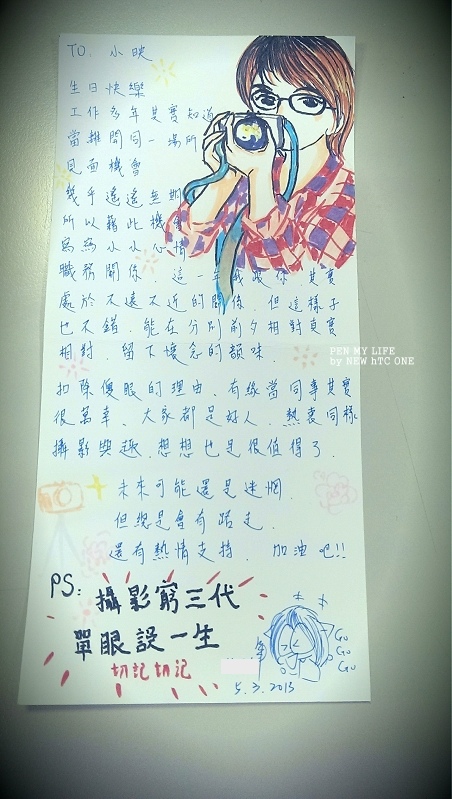 TO. 小映
生日快樂
工作多年其實知道
當離開同一場所
見面機會
幾乎遙遙無期
所以藉此機會
寫寫小小心情
職務關係, 這一年我跟你, 其實
處於不遠不近的關係, 但這樣子
也不錯. 能在分別前夕相對真實
相對, 留下懷念的韻味.
扣除傻眼的理由, 有緣當同事其實
很萬幸. 大家都是好人. 熱衷同樣
攝影興趣. 想想也是很值得了.
未來可能還是迷惘.
但總是會有路走.
還有熱情支持. 加油吧!!
PS: 攝影窮三代
單眼誤一生
切記切記
Go
Go
Go
5.3.2013
PEN MY LIFE
by NEW hTC ONE